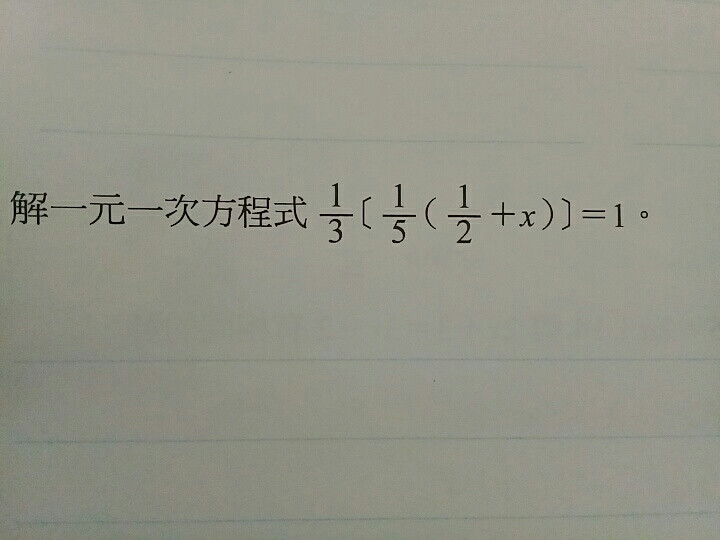 解一元一次方程式 1/3〔1/5(1/2+x)〕=1。